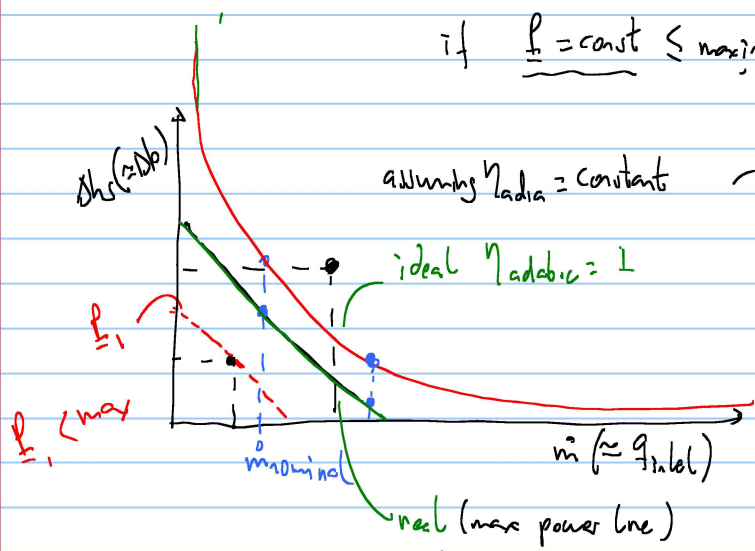 if P = const ≤ maxi
Δhs(≃Δp)
assuming ηadia = constant
ideal ηadabic = 1
P1
P1 < max
ṁnominal
ṁ (≃ qinlet)
real (max power line)